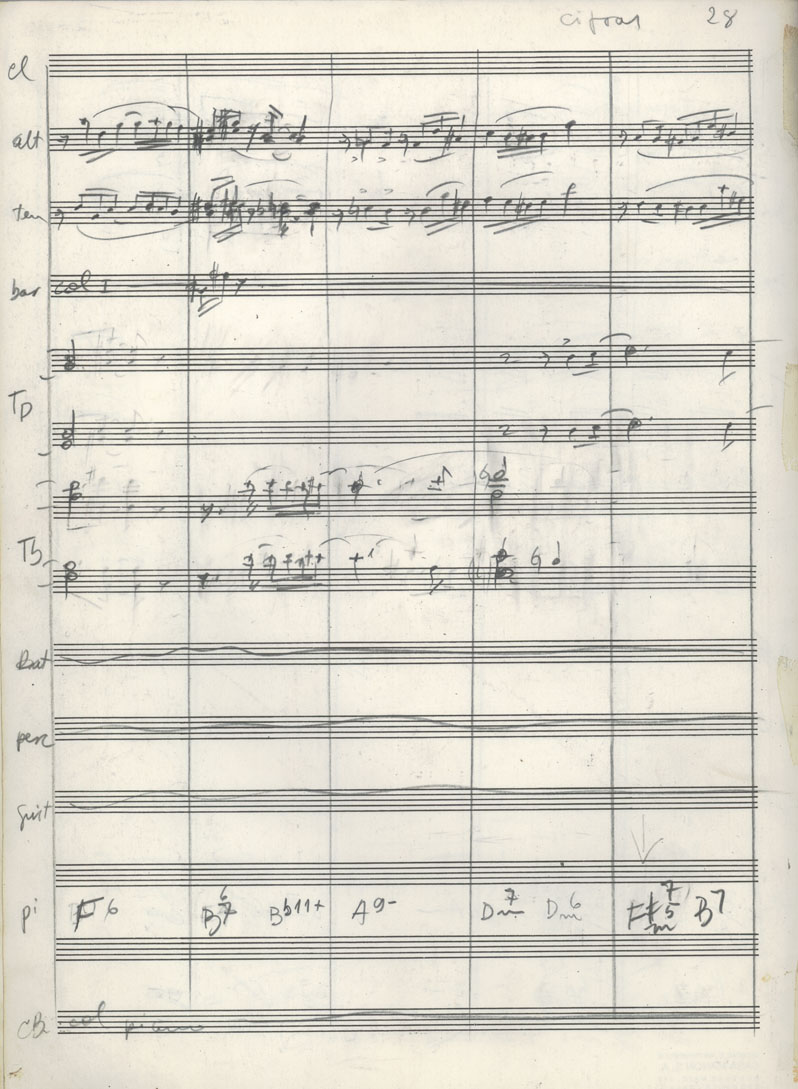 cifras 28
cl
alt
ten
bar col I
Tp
Tb
Bat
perc
guit
pi F6 B67 Bb11+ A9- Dm7 Dm6 F#m75 B7
CB col piano